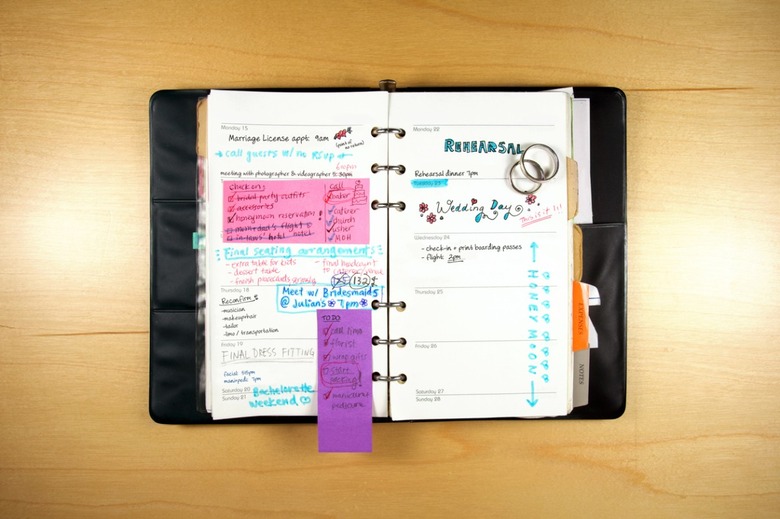 Monday 15
Marriage License appt. 9am
(point of no return)
call guests w/ no RSVP
meeting with photographer & videographer
check on:
bridal party outfits
accessories
honeymoon reservation!
mom + dad's flight
in-laws' hotel
call
baker
caterer
church
usher
MOH
Final seating arrangements
- extra table for kids
- dessert table
- fresh placecards
- final headcount
to caterer
132
Meet w/ Bridesmaids
@ Julian's 7pm
Thursday 18
Reconfirm
- musician
- makeup/hair
- tailor
- limo / transportation
Friday 19
FINAL DRESS FITTING
facial
manipedi
Saturday 20
Sunday 21
Bachelorette
Weekend
TO DO
call limo
florist
manicure/
pedicure
Monday 22
REHEARSAL
Rehearsal dinner 7pm
Wedding Day
This is it!!
Wednesday 24
- check-in + print boarding passes
- flight: 2pm
Thursday 25
HONEYMOON
Friday 26
Saturday 27
Sunday 28
EXPENSES
NOTES